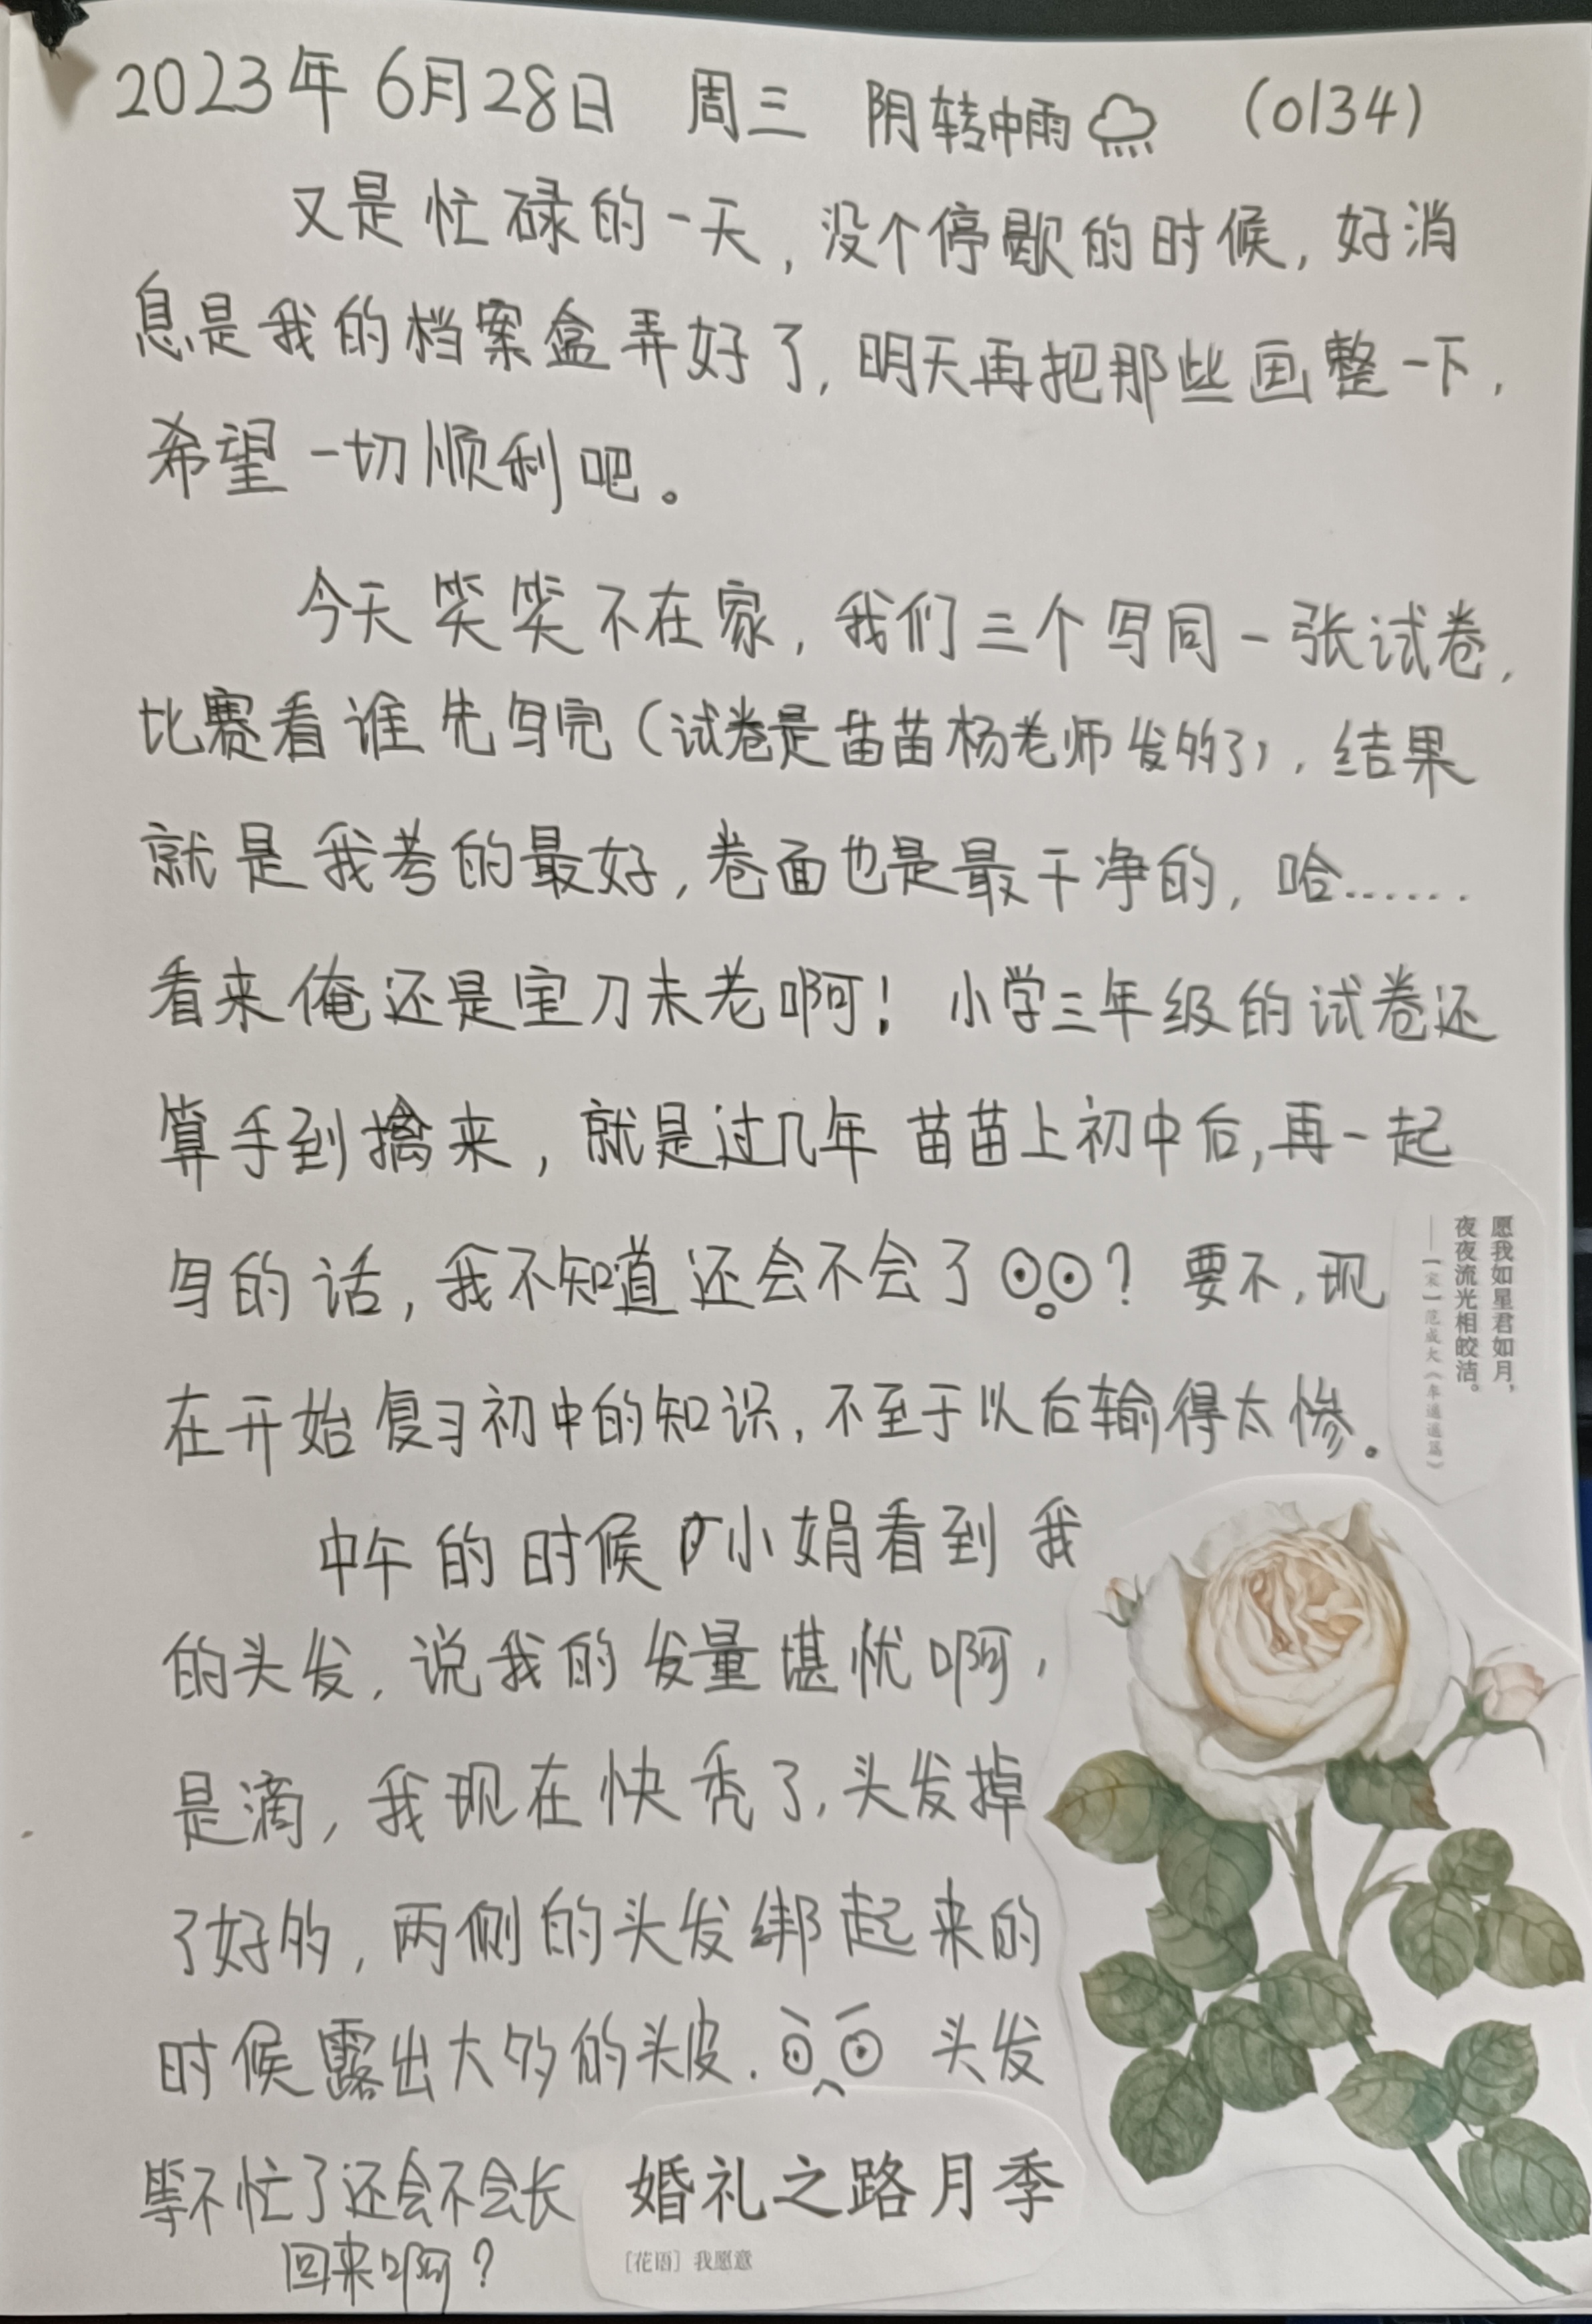 2023年6月28日 周三 阴转中雨 (0134)
又是忙碌的一天，没个停歇的时候，好消
息是我的档案盒弄好了，明天再把那些画整一下，
希望一切顺利吧。
今天笑笑不在家，我们三个写同一张试卷，
比赛看谁先写完（试卷是苗苗杨老师发的了），结果
就是我考的最好，卷面也是最干净的，哈……
看来俺还是宝刀未老啊！小学三年级的试卷还
算手到擒来，就是过几年苗苗上初中后，再一起
写的话，我不知道还会不会了？要不，现
在开始复习初中的知识，不至于以后输得太惨。
中午的时候小娟看到我
的头发，说我的发量堪忧啊，
是滴，我现在快秃了，头发掉
了好多，两侧的头发绑起来的
时候露出大多的头皮．头发
等不忙了还会不会长
回来啊？
愿我如星君如月，
夜夜流光相皎洁。
——［宋］范成大《车遥遥篇》
婚礼之路月季
［花语］我愿意